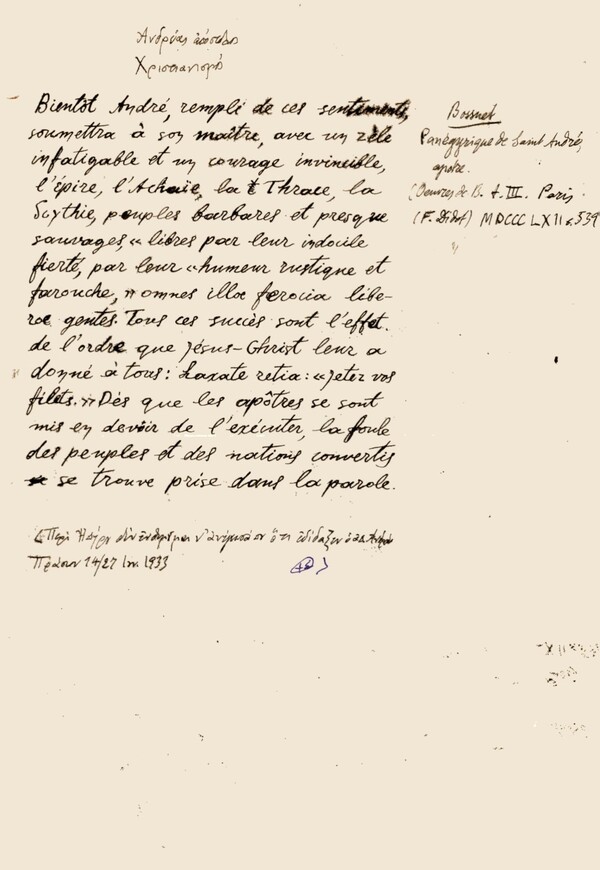 Ἀνδρέας ἀπόστολος
Χριστιανισμός
Bientôt André, rempli de ces sentiments,
soumettra à son maître, avec un zèle
infatigable et un courage invincible,
l'épire, l'Achaïe, la Thrace, la
Scythie, peuples barbares et presque
sauvages, « libres par leur indocile
fierté, par leur « humeur rustique et
farouche, » omnes illae ferocia libe-
rae gentes. Tous ces succès sont l'effet
de l'ordre que Jésus-Christ leur a
donné à tous: Laxate retia: « Jetez vos
filets. » Dès que les apôtres se sont
mis en devoir de l'exécuter, la foule
des peuples et des nations convertis
se trouve prise dans la parole.
Bossuet
Panégyrique de Saint André,
apôtre.
(Oeuvres de B. t. III. Paris
(F. Didot) MDCCCLXII σ. 539
ὅτι ἐδίδαξεν
14/27 1933